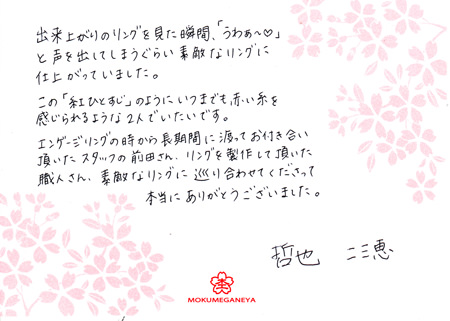 出来上がりのリングを見た瞬間、「うわぁ〜♡」
と声を出してしまうぐらい素敵なリングに
仕上がっていました。
この「紅ひとすじ」のようにいつまでも赤い糸を
感じられるような2人でいたいです。
エンゲージリングの時から長期間に渡ってお付き合い
頂いたスタッフの前田さん、リングを製作して頂いた
職人さん、素敵なリングに巡り合わせてくださって
本当にありがとうございました。
哲也 二三恵
MOKUMEGANEYA